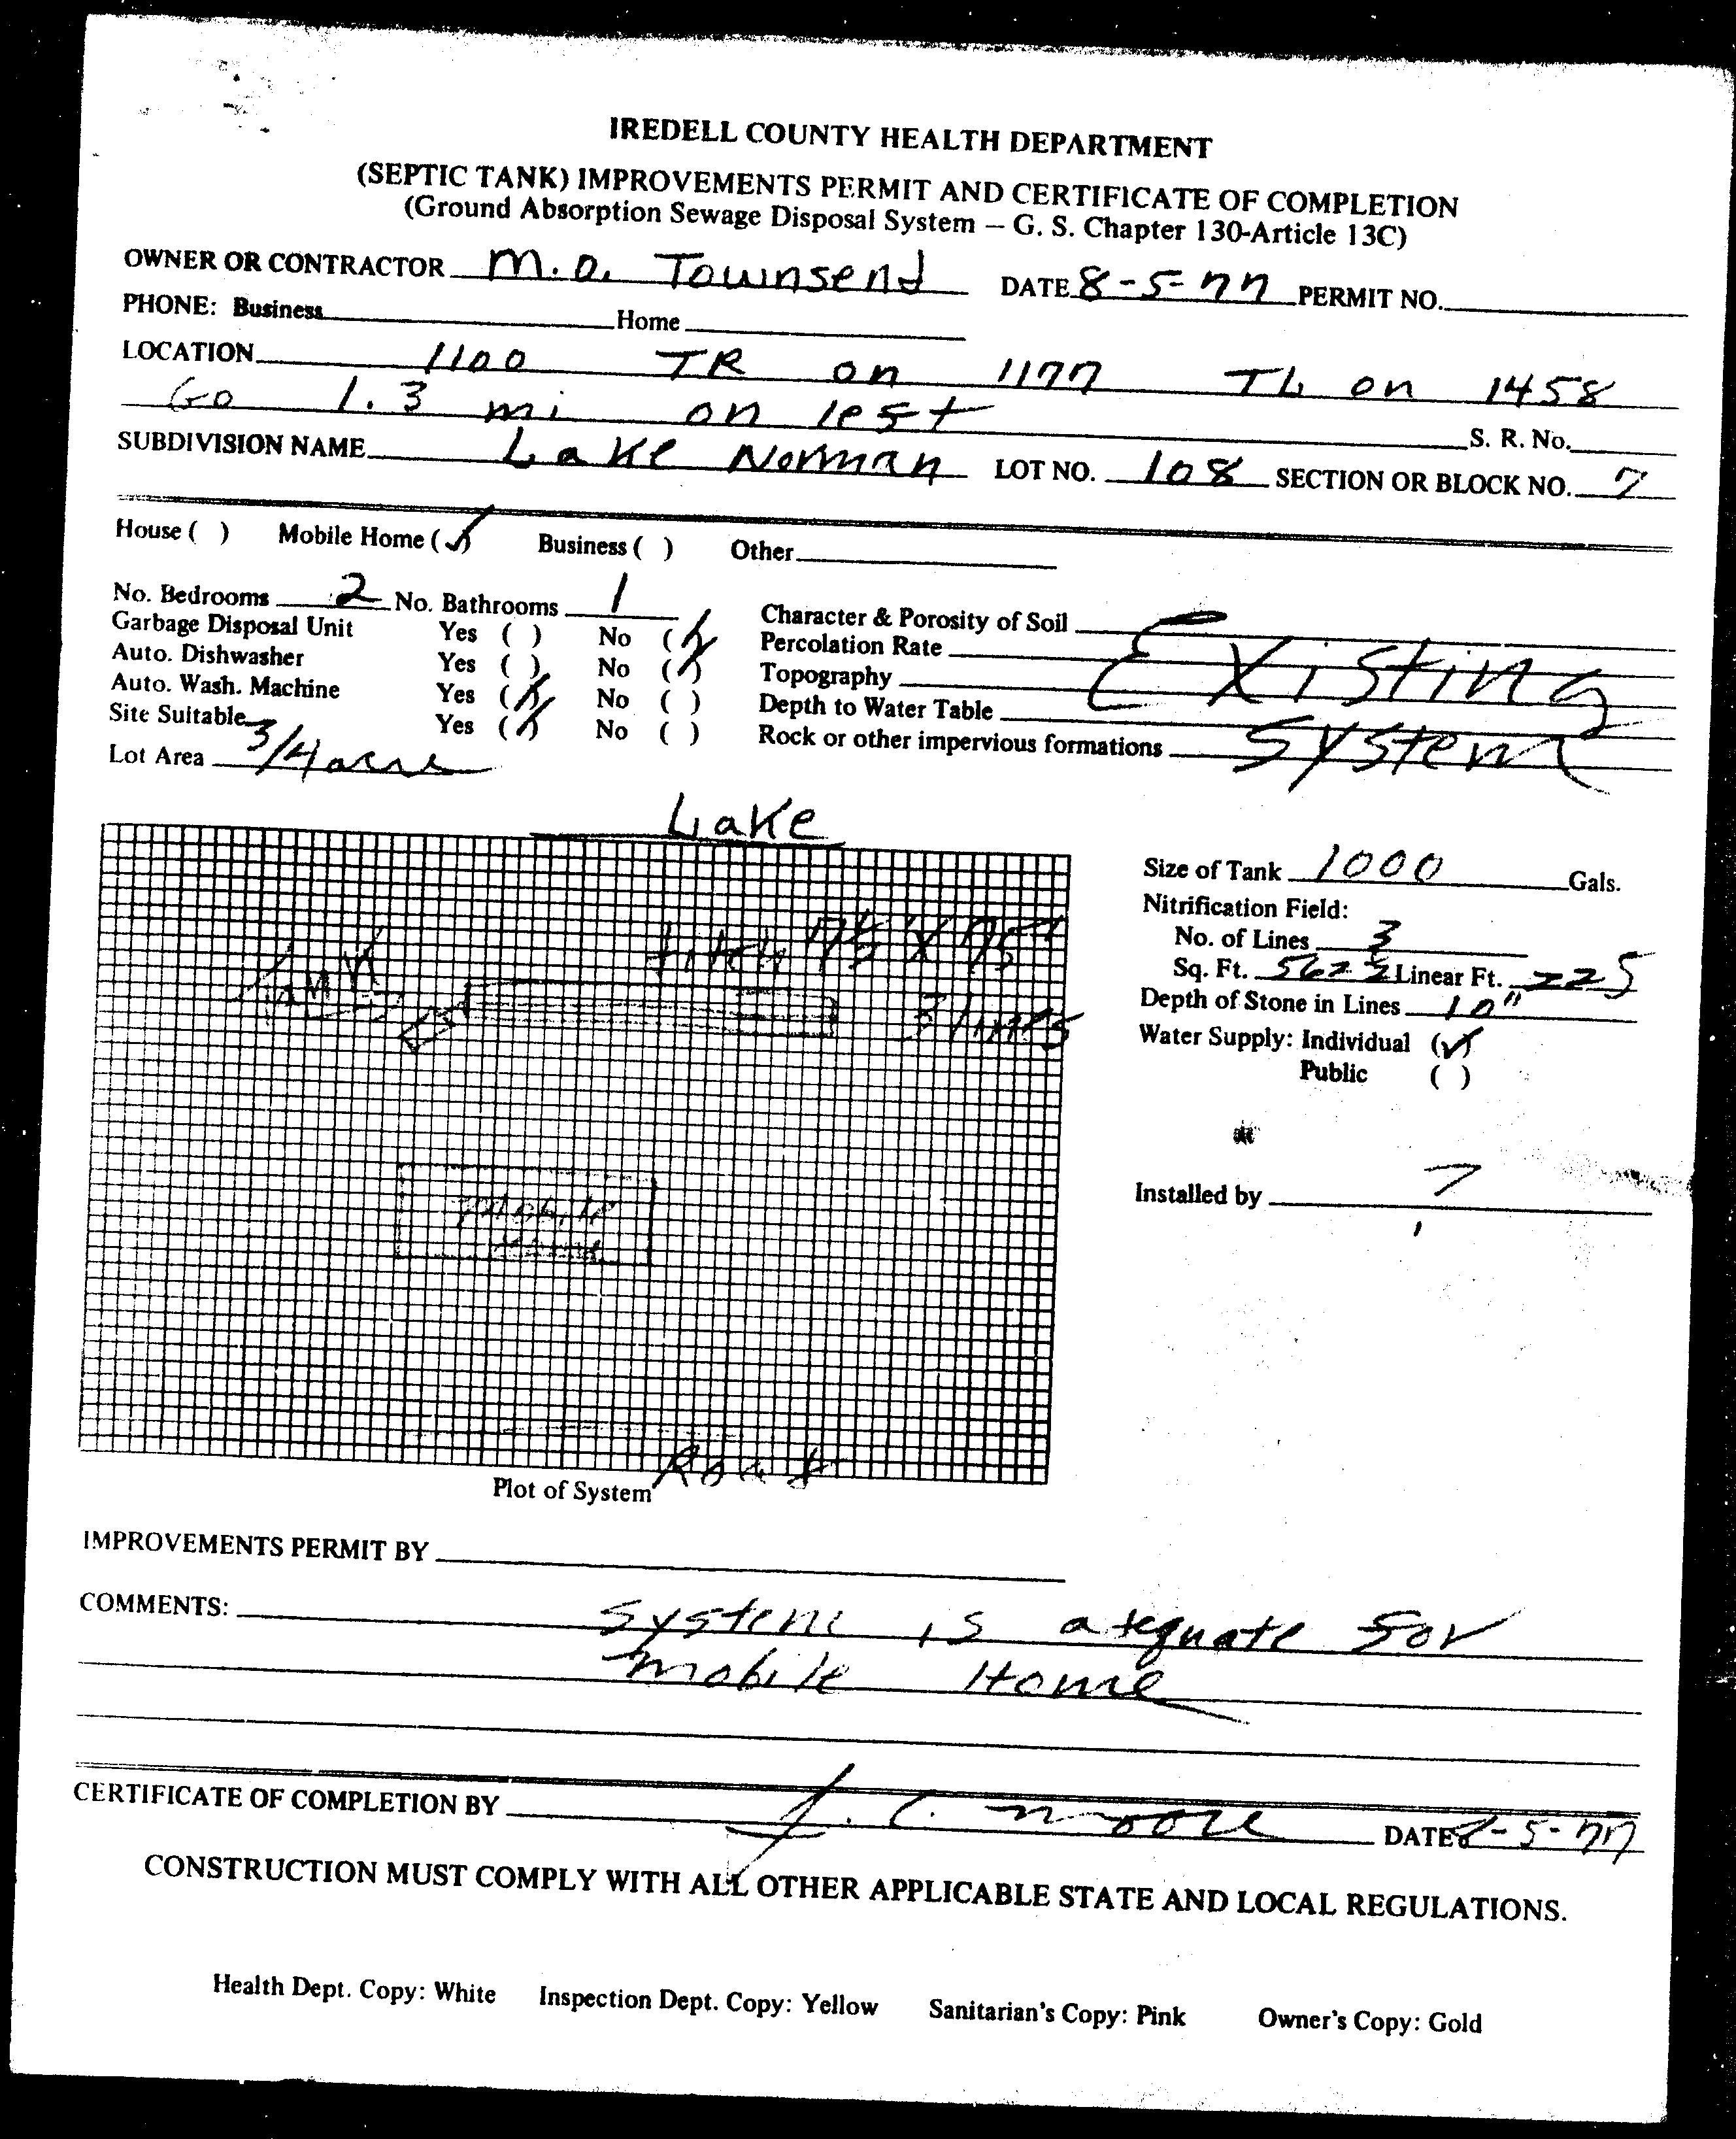 IREDELL COUNTY HEALTH DEPARTMENT
(SEPTIC TANK) IMPROVEMENTS PERMIT AND CERTIFICATE OF COMPLETION
(Ground Absorption Sewage Disposal System – G. S. Chapter 130-Article 13C)
OWNER OR CONTRACTOR M.O. Townsend DATE 8-5-77 PERMIT NO.
PHONE: Business Home
LOCATION 1100 TR on 1177 TL on 1458
Go 1.3 mi on left S. R. No.
SUBDIVISION NAME Lake Norman LOT NO. 108 SECTION OR BLOCK NO. 7
House ( ) Mobile Home (✓) Business ( ) Other
No. Bedrooms 2 No. Bathrooms 1
Garbage Disposal Unit Yes ( ) No (✓)
Auto. Dishwasher Yes ( ) No (✓)
Auto. Wash. Machine Yes (✓) No ( )
Site Suitable Yes (✓) No ( )
Lot Area 3/4 acre
Character & Porosity of Soil
Percolation Rate Existing
Topography
Depth to Water Table
Rock or other impervious formations System
Lake
Tank
75' X 75'
3 lines
Mobile
Home
Road
Plot of System
Size of Tank 1000 Gals.
Nitrification Field:
No. of Lines 3
Sq. Ft. 562 1/2 Linear Ft. 225
Depth of Stone in Lines 10"
Water Supply: Individual (✓)
Public ( )
Installed by ?
IMPROVEMENTS PERMIT BY
COMMENTS: System is adequate for
mobile Home
CERTIFICATE OF COMPLETION BY J. C. Moore DATE 8-5-77
CONSTRUCTION MUST COMPLY WITH ALL OTHER APPLICABLE STATE AND LOCAL REGULATIONS.
Health Dept. Copy: White Inspection Dept. Copy: Yellow Sanitarian's Copy: Pink Owner's Copy: Gold